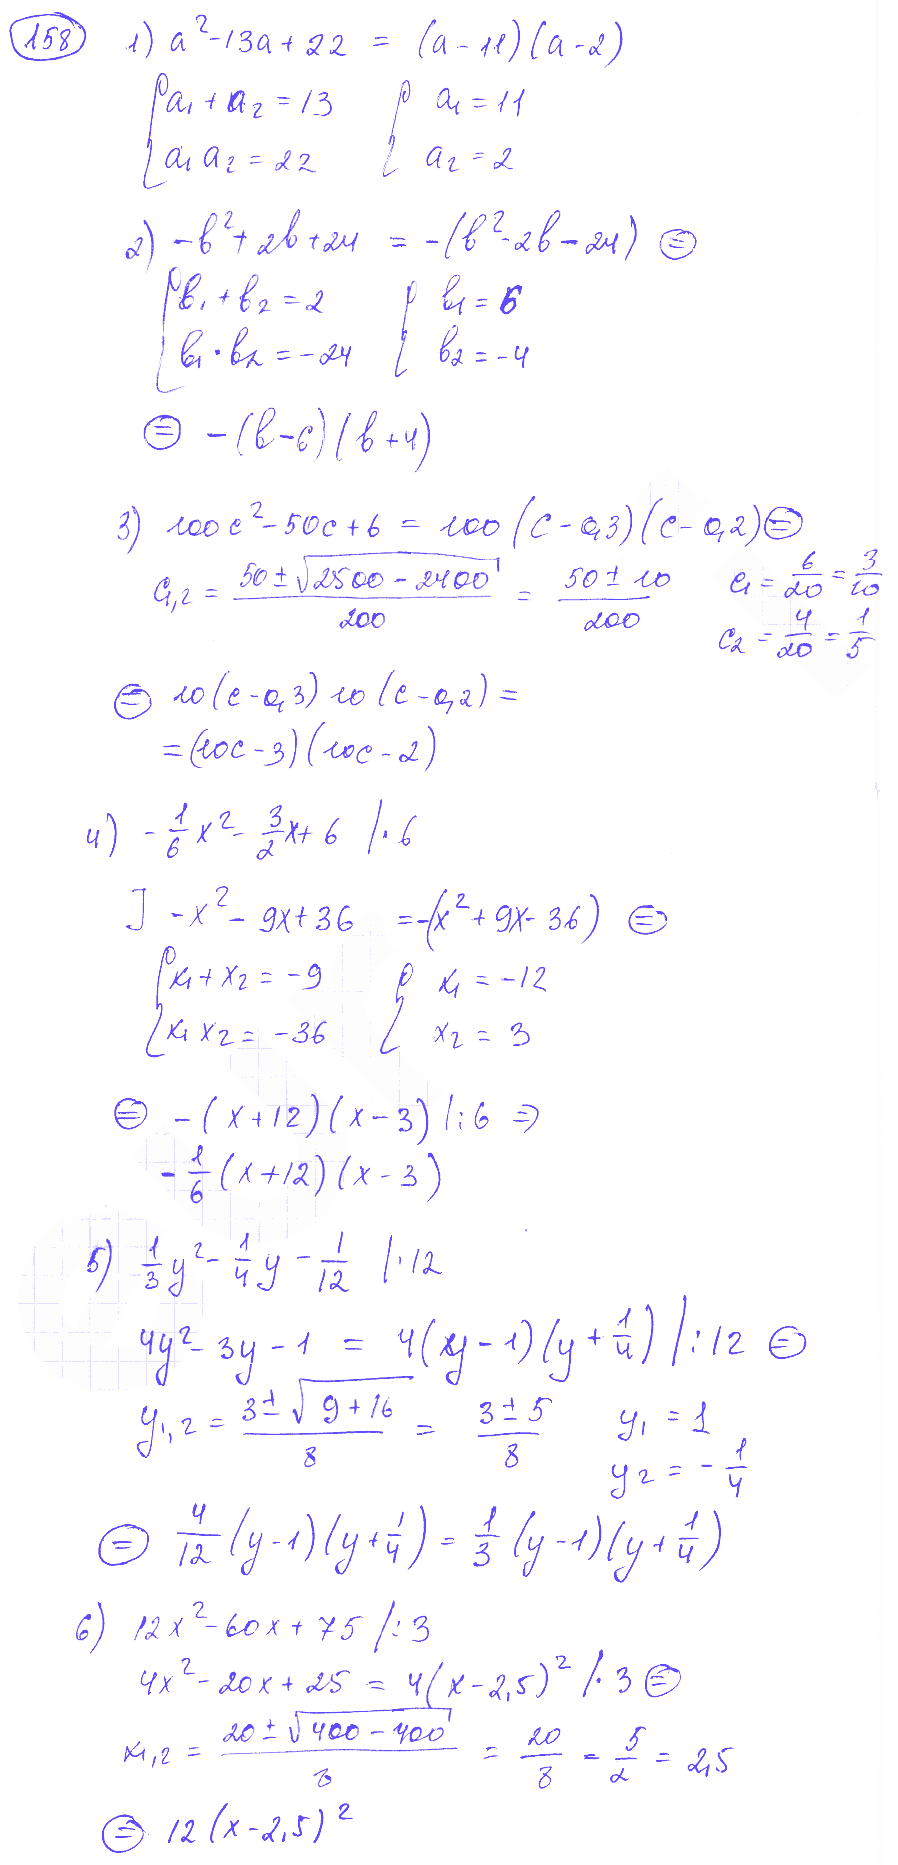 158 1) a² - 13a + 22 = (a - 11)(a - 2)
{ a₁ + a₂ = 13 { a₁ = 11
{ a₁ a₂ = 22 { a₂ = 2
2) -b² + 2b + 24 = -(b² - 2b - 24) ⊜
{ b₁ + b₂ = 2 { b₁ = 6
{ b₁ · b₂ = -24 { b₂ = -4
⊜ -(b - 6)(b + 4)
3) 100c² - 50c + 6 = 100(c - 0,3)(c - 0,2) ⊜
c₁,₂ = (50 ± √(2500 - 2400))/200 = (50 ± 10)/200 c₁ = 6/20 = 3/10
c₂ = 4/20 = 1/5
⊜ 10(c - 0,3) 10(c - 0,2) =
= (10c - 3)(10c - 2)
4) -1/6 x² - 3/2 x + 6 /· 6
] -x² - 9x + 36 = -(x² + 9x - 36) ⊜
{ x₁ + x₂ = -9 { x₁ = -12
{ x₁ x₂ = -36 { x₂ = 3
⊜ -(x + 12)(x - 3) /: 6 ⇒
-1/6 (x + 12)(x - 3)
5) 1/3 y² - 1/4 y - 1/12 /· 12
4y² - 3y - 1 = 4(y - 1)(y + 1/4) /: 12 ⊜
y₁,₂ = (3 ± √(9 + 16))/8 = (3 ± 5)/8 y₁ = 1
y₂ = -1/4
⊜ 4/12 (y - 1)(y + 1/4) = 1/3 (y - 1)(y + 1/4)
6) 12x² - 60x + 75 /: 3
4x² - 20x + 25 = 4(x - 2,5)² /· 3 ⊜
x₁,₂ = (20 ± √(400 - 400))/8 = 20/8 = 5/2 = 2,5
⊜ 12(x - 2,5)²